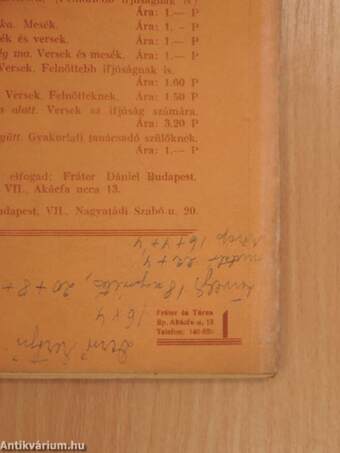 ifjúságnak is)
Ára: 1.— P
ka. Mesék. Ára: 1.— P
ék és versek. Ára: 1.— P
ég ma. Versek és mesék. Ára: 1.— P
Versek. Felnőttebb ifjúságnak is.
Ára: 1.60 P
Versek. Felnőtteknek. Ára: 1 50 P
a alatt. Versek az ifjúság számára.
Ára: 3.20 P
gyütt. Gyakorlati tanácsadó szülőknek.
Ára: 1.— P
elfogad: Fráter Dániel Budapest,
VII., Akácfa ucca 13.
udapest, VII., Nagyatádi Szabó-u. 20.
16+4+4
22+4,
18 20+8+
16x4
Fráter és Társa
Bp. Akácfa-u. 13
Telefon:
1
Antikvárium.hu